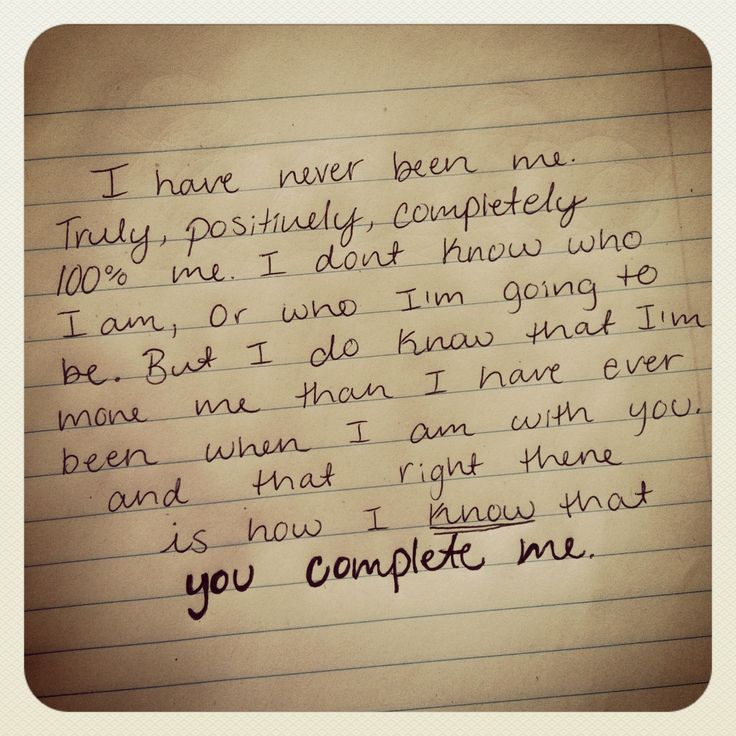 I have never been me.
Truly, positively, completely
100% me. I dont know who
I am, Or who I'm going to
be. But I do know that I'm
more me than I have ever
been when I am with you.
and that right there
is how I know that
you complete me.